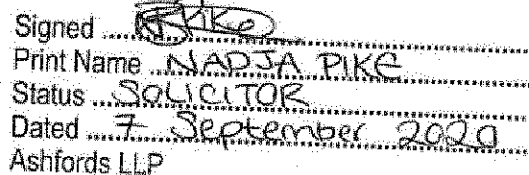 Signed ... Pike
Print Name ... NADJA PIKE
Status ... SOLICITOR
Dated ... 7 September 2020
Ashfords LLP